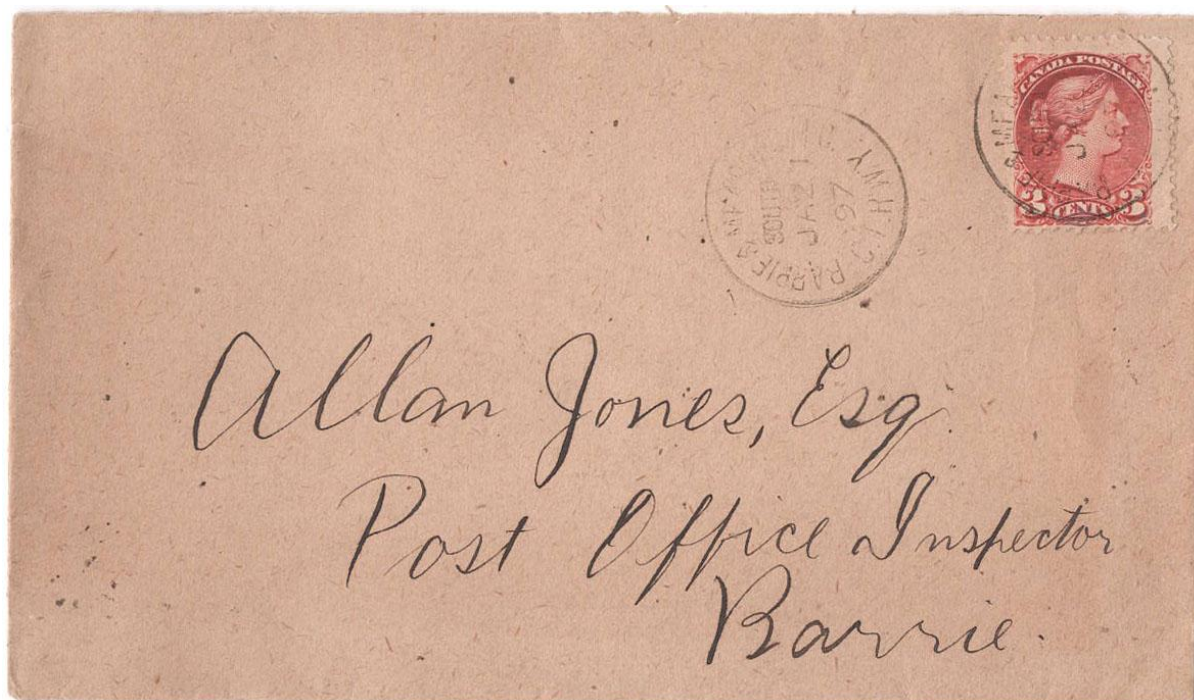 CANADA POSTAGE
3 CENTS 3
BARRIE & MEAFORD
SOUTH
JA 21
97
Allan Jones, Esq.
Post Office Inspector
Barrie.